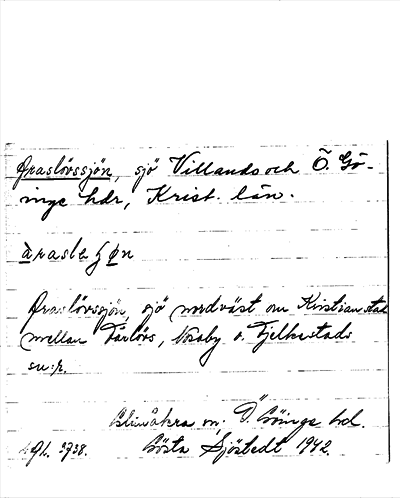 Araslövssjön, sjö Villands och Ö. Gö-
inge hdr, Krist. län.
àraslehøn
Araslövssjön, sjö nordväst om Kristianstad
mellan Färlövs, Nosaby o. Fjelkestads
sn:r.
Glimåkra sn; Ö. Göinge hd.
Gösta Sjöstedt 1942.
3738.